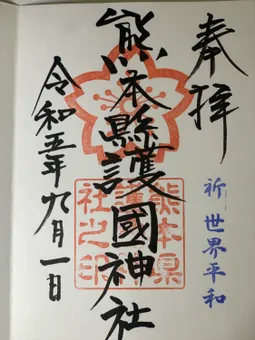 奉拝
祈 世界平和
熊本縣護國神社
熊本県護國神社之印
令和五年九月一日